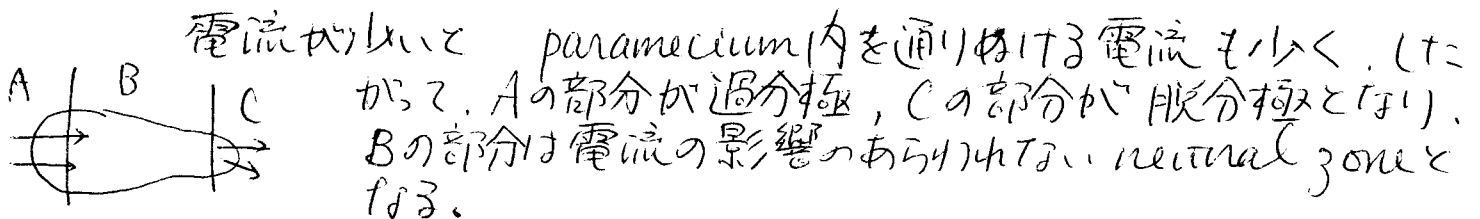 電流が少いと paramecium内を通りぬける電流も少く、した
がって、Aの部分が過分極，Cの部分が脱分極となり、
Bの部分は電流の影響のあらわれない neutral zoneと
なる。
A
B
C